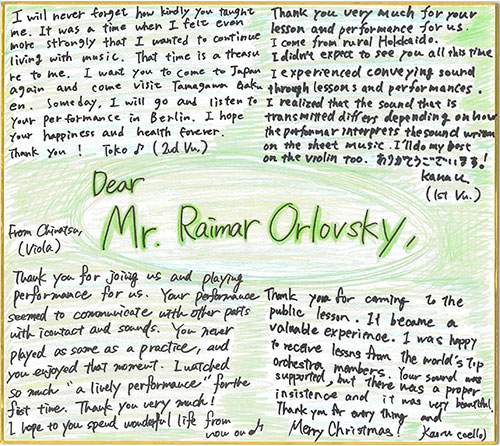 I will never forget how kindly you taught
me. It was a time when I felt even
more strongly that I wanted to continue
living with music. That time is a treasu
re to me. I want you to come to Japan
again and come visit Tamagawa Gaku
en. Someday, I will go and listen to
your performance in Berlin. I hope
your happiness and health forever.
Thank you! Toko♪ (2nd Vn.)
Thank you very much for your
lesson and performance for us.
I come from rural Hokkaido.
I didn't expect to see you all this time
I experienced conveying sound
through lessons and performances.
I realized that the sound that is
transmitted differs depending on how
the performar interprets the sound writen
on the sheet music. I'll do my best
on the violin too. ありがとうございます!
(1st Vn.)
Dear
Mr. Raimar Orlovsky,
From Chinatsu,
(Viola)
Thank you for joing us and playing
performance for us. Your performance
seemed to communicate with other parts
with icontact and sounds. You never
played as same as a practice, and
you enjoyed that moment. I watched
so much "a lively performance" for the
fist time. Thank you very much!
I hope to you spend wonderful life from
now on♪
Thank you for coming to the
public lesson. It became a
valuable experience. I was happy
to receive lessns from the world's top
orchestra members. Your sound was
supported, but there was a proper
insistence and it was very beautiful.
Thank you for every thing and
Merry Christmas! Kaoru (cello)